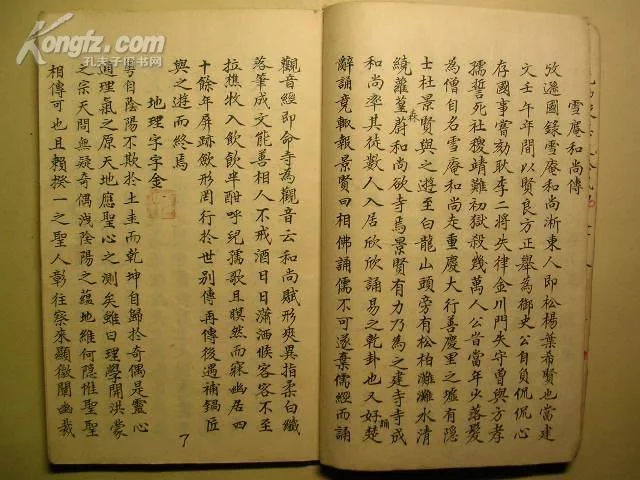 Kongfz.com
孔夫子旧书网
雪庵和尚傳
攷遜國錄雪庵和尚淅東人即松楊葉希賢也當建
文壬午年間以賢良方正舉為御史公自負侃侃心
存國事嘗劾耿李二將失律金川門失守曹與方孝
孺誓死社稷靖難初獄殺幾萬人公昔當年火落髪
為僧自名雪庵和尚走重慶大行善慶里之墟有隠
士杜景賢與之遊至白龍山頭旁有松柏灘灘水清
繞蘿篁森蔚和尚欲寺焉景賢有力乃為之建寺寺成
和尚率其徒數人入居欣欣誦易之乾卦也又好誦楚
辭誦竟輙報景賢曰相佛誦儒不可遂棄儒經而誦
觀音經即命寺為觀音云和尚賦形夾異指柔白纖
落筆成文能善相人不戒酒日日瀟洒候客客不至
拉樵牧入飲飲半酣呼兒孺歌且瞑然而寐幽居四
十餘年屏跡歛形罔行於世别傳再傳後遇補鍋匠
與之遊而終焉
地理字字金
粤自陰陽不欺於土圭而乾坤自歸於奇偶是靈心
通理氣之原天地應聖心之測矣雖曰理學開洪蒙
之宗天問無疑奇偶洩陰陽之蕴地維何隠惟聖聖
相傳可也且賴揆一之聖人彰往察來顯微闡幽裁
7